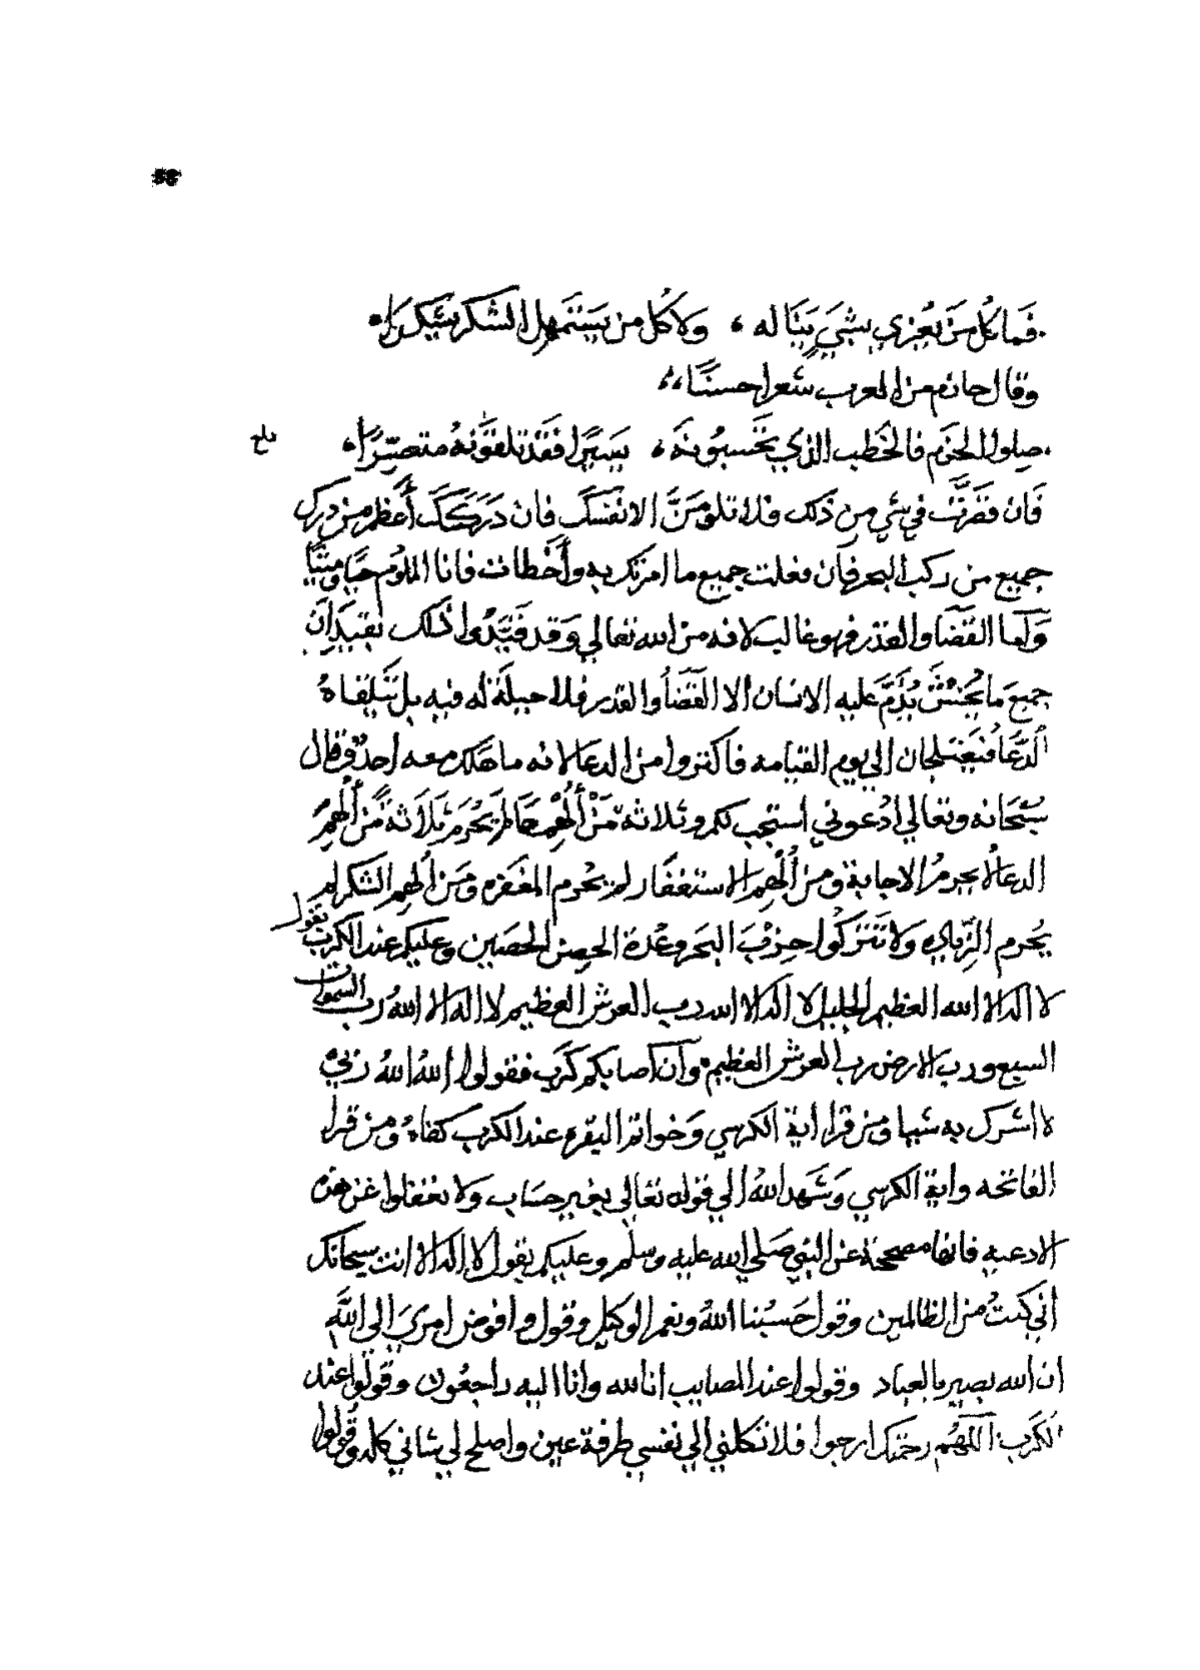 فما كل من يعزي بشي يناله ، ولا كل من يستمهل الشكر يشكرا
وقال حاتم من العرب شعرا حسنا
صلوا الحزم فالخطب الذي تحسبونه ، يسيرا فقد تلقونه متعسرا ،
فان فصرت في شي من ذلك فلا تلومن الا نفسك فان دركك أعظم من درك
جميع من ركب البحر فان فعلت جميع ما امرتك به وأخطات فانا الملوم حيا وميتا
وأما القضا والقدر فهو غالب لانه من الله تعالي وقد قيدوا ذلك بقيد ان
جميع ما يذم عليه الانسان الا القضا والقدر فلا حيلة له فيه بل تلقاه
الدعا فيعتلجان الي يوم القيامه فاكثروا من الدعا لانه ما هلك معه احد وقال
سبحانه وتعالي ادعوني استجب لكم وثلاثة من ألهم لم يحرم ثلاثة من ألهم
الدعا لا يحرم الاجابة ومن ألهم الاستغفار لم يحرم المغفره ومن ألهم الشكر لم
يحرم الزياده ولا تتركوا حزب البحر وعدة الحصن الحصين وعليكم عند الكرب تقول
لا اله الا الله العظيم الجليل لا اله الا الله رب العرش العظيم لا اله الا الله رب السموات
السبع ورب الارض رب العرش العظيم وان اصابكم كرب فقولوا الله الله ربي
لا اشرك به شيا ومن قرا اية الكرسي وخواتم البقره عند الكرب كفاه ومن قرا
الفاتحه واية الكرسي وشهد الله الي قوله تعالي بغير حساب ولا تغفلوا عن هذه
الادعيه فانها مصححة عن النبي صلي الله عليه وسلم وعليكم بقول لا اله الا انت سبحانك
اني كنت من الظالمين وقول حسبنا الله ونعم الوكيل وقول وافوض امري الى الله
ان الله بصير بالعباد وقولوا عند المصايب انا لله وانا اليه راجعون وقولوا عند
الكرب اللهم رحمتك ارجوا فلا تكلني الي نفسي طرفة عين واصلح لي شاني كله وقولوا